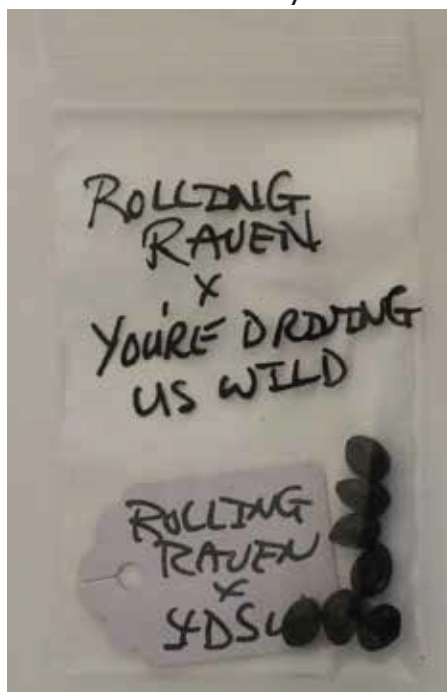 ROLLING
RAVEN
x
YOU'RE DRIVING
US WILD
ROLLING
RAVEN
x